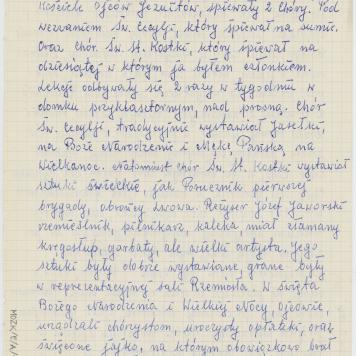 Kościele Ojców Jezuitów, śpiewały 2 chóry. Pod
wezwaniem Św. Cecylji, który śpiewał na sumie.
Oraz chór Św. St. Kostki, który śpiewał na
dziesiątej w którym ja byłem członkiem.
Lekcje odbywały się 2 razy w tygodniu w
domku przyklasztornym, nad prosną. Chór
Św. Cecylji, tradycyjnie wystawiał Jasełki,
na Boże Narodzenie i Mękę Pańską na
Wielkanoc. Natomiast chór Św. St. Kostki wystawiał
sztuki świeckie, jak Porucznik pierwszej
brygady, obrońcy Lwowa. Reżyser Józef Jaworski
rzemieślnik, pilnikarz, kaleka miał złamany
kręgosłup, garbaty, ale wielki artysta. Jego
sztuki były dobrze wystawiane, grane były
w reprezentacyjnej sali Rzemiosła. W święta
Bożego Narodzenia i Wielkiej Nocy, ojcowie,
urządzali chórystom, uroczysty opłatek, oraz
święcone jajko, na którym obowiązkowo brał